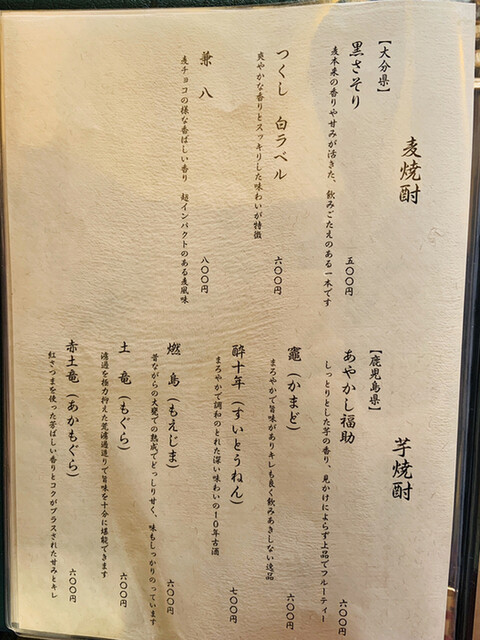 麦焼酎
【大分県】
黒さそり
麦本来の香りや甘みが活きた、飲みごたえのある一本です
五〇〇円
つくし　白ラベル
爽やかな香りとスッキリした味わいが特徴
六〇〇円
兼　八
麦チョコの様な香ばしい香り　超インパクトのある麦風味
八〇〇円
芋焼酎
【鹿児島県】
あやかし福助
しっとりとした芋の香り、見かけによらず上品でフルーティー
六〇〇円
竈（かまど）
まろやかで旨味がありキレも良く飲みあきしない逸品
六〇〇円
酔十年（すいとうねん）
まろやかで調和のとれた深い味わいの１０年古酒
七〇〇円
燃　島（もえじま）
昔ながらの大甕での熟成でどっしり甘く、味もしっかりのっています
六〇〇円
土　竜（もぐら）
濾過を極力抑えた荒濾過造りで旨味を十分に堪能できます
六〇〇円
赤土竜（あかもぐら）
紅さつまを使った芳ばしい香りとコクがプラスされた甘みとキレ
六〇〇円